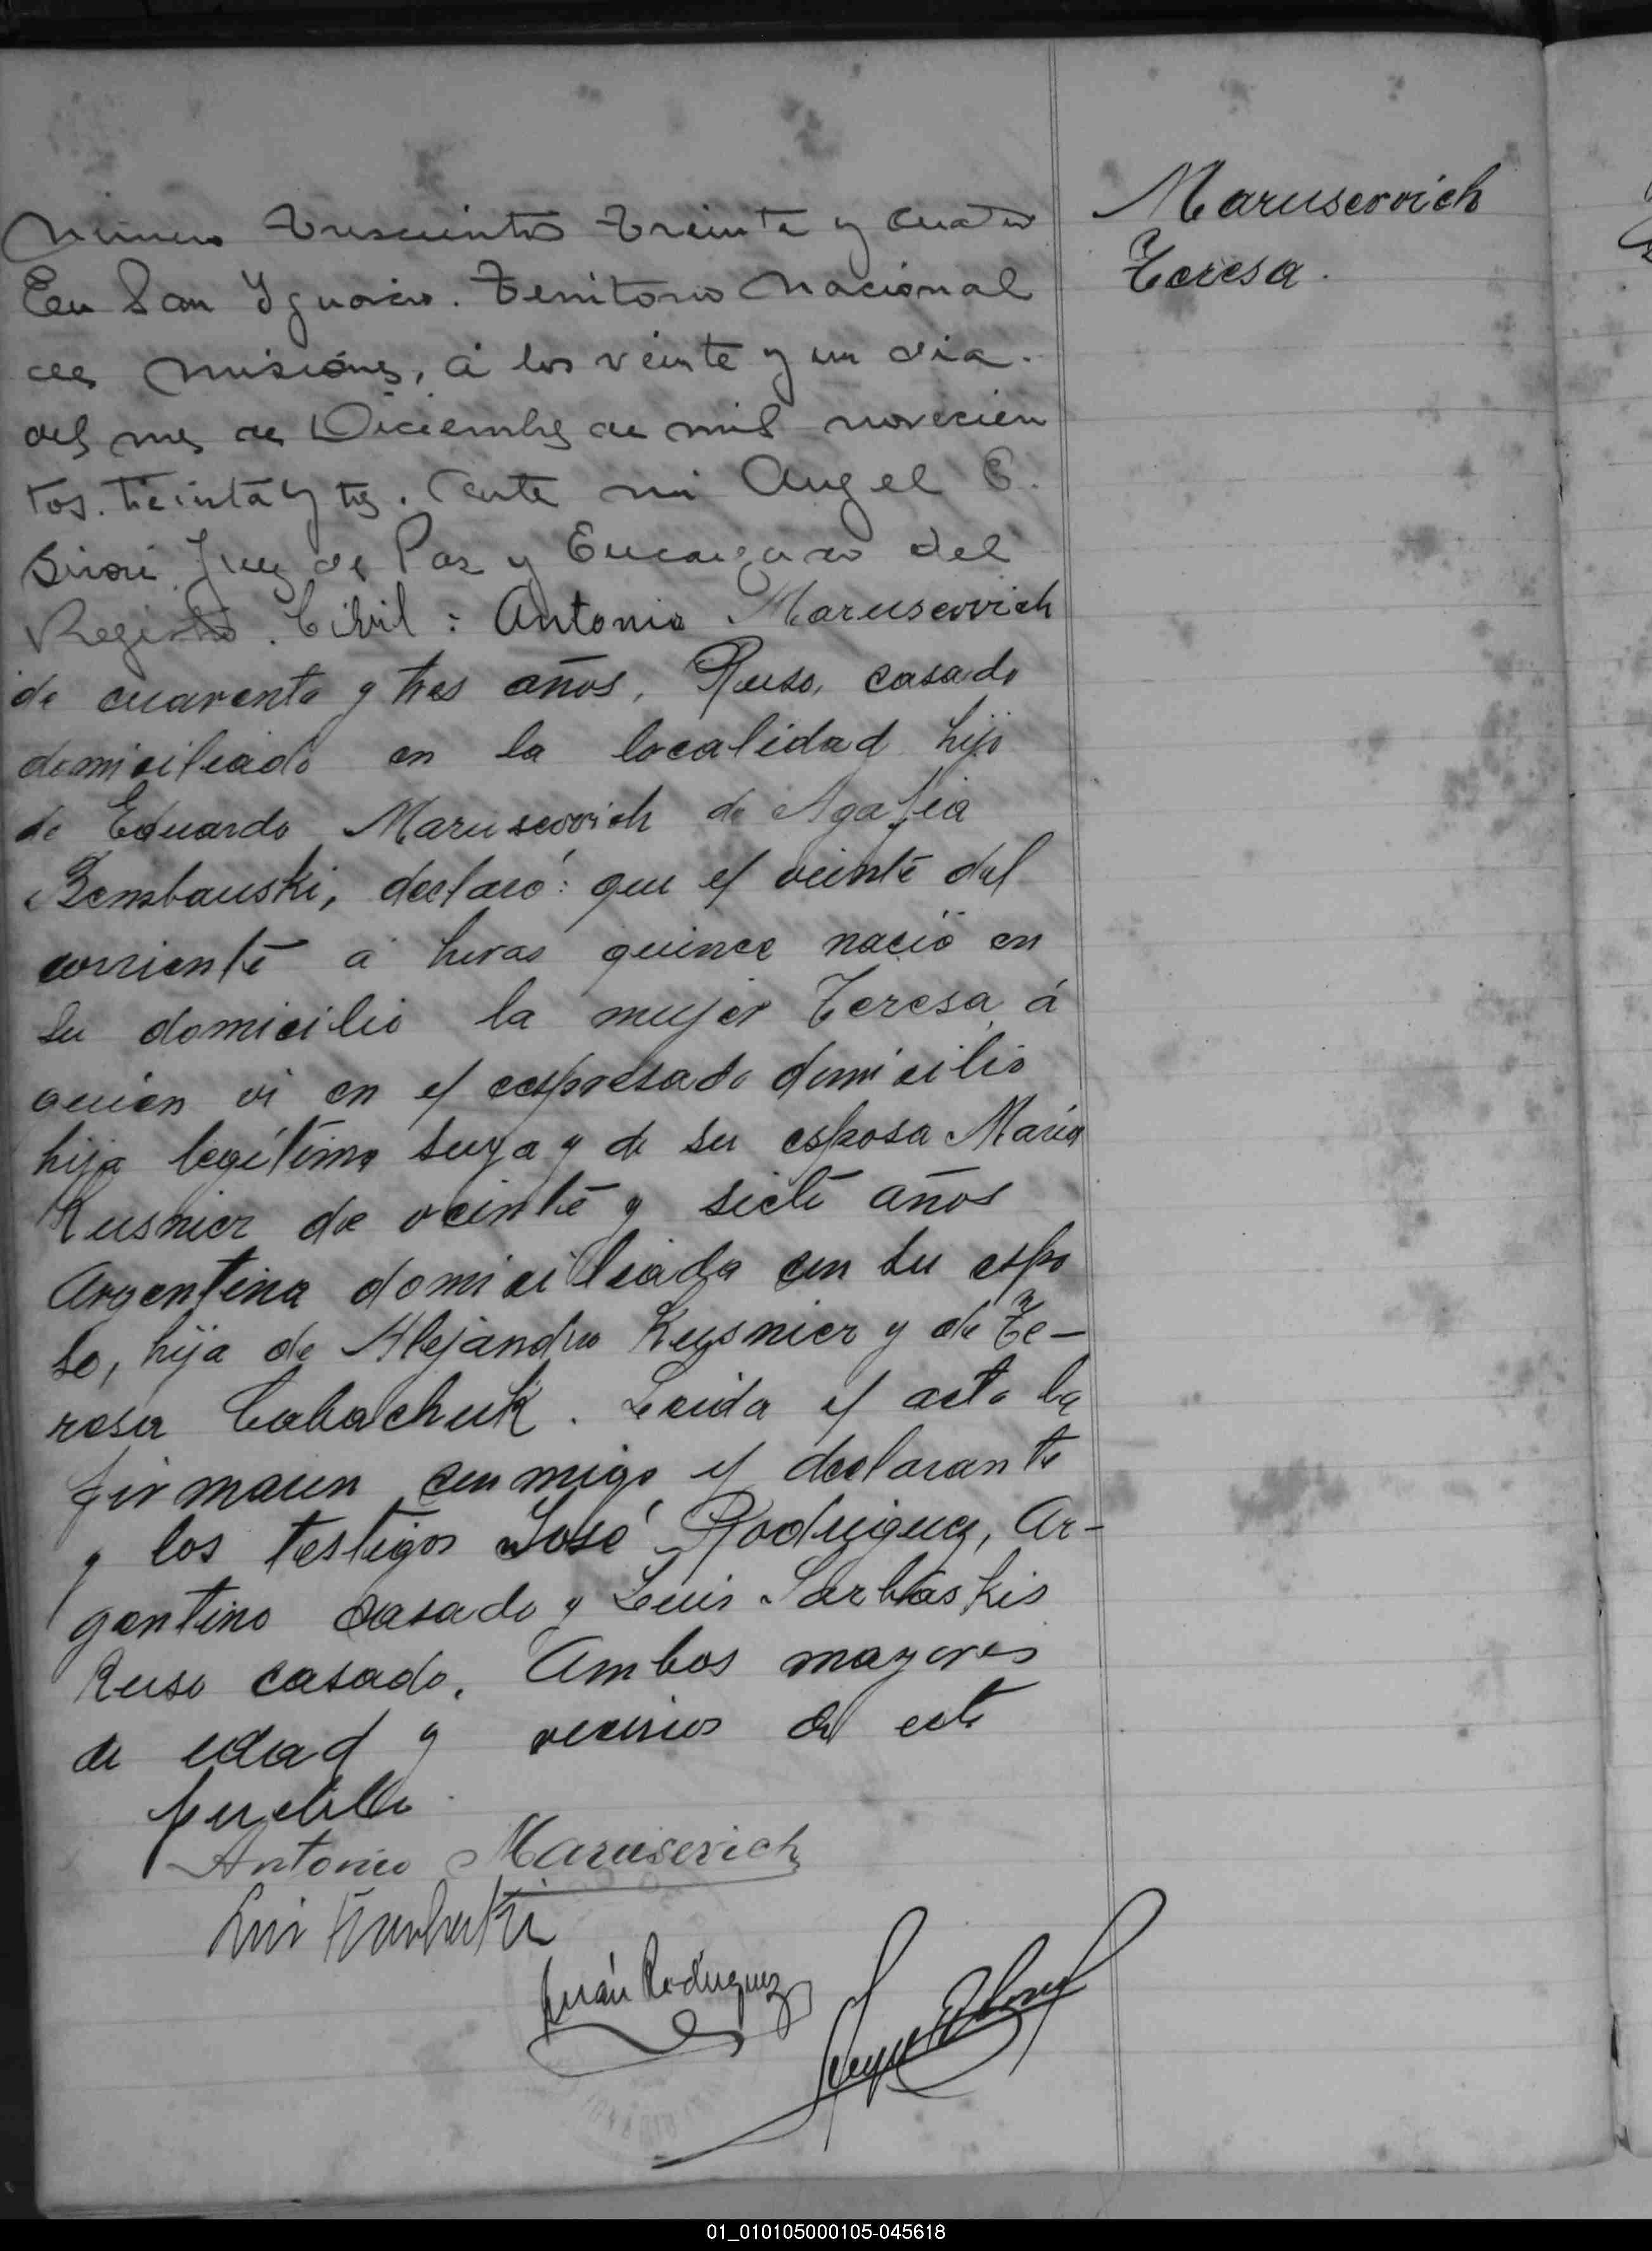 Maruscovich
Teresa.
Número trescientos treinta y cuatro
En San Ygnacio. Territorio Nacional
de Misiones, á los veinte y un dia.
del mes de Diciembre de mil novecien
tos. treinta y tres. Ante mi Angel E.
Juez de Paz y Encargado del
Registro. Civil: Antonio Maruscovich
de cuarenta y tres años, Ruso, casado
domiciliado en la localidad hijo
de Eduardo Maruscovich de Agafia
Bembauski, declaró: que el veinte del
corriente á horas quince nació en
su domicilio la mujer Teresa á
quien vi en el espresado domicilio
hija legítima suya y de su esposa María
Kusnier de veinte y siete años
Argentina domiciliada con su espo
so, hija de Alejandro Kusnier y de Te-
resa Cabachuk. Leida el acta la
firmaun conmigo el declarante
y los testigos José Rodriguez, Ar-
gentino casado y Luis Sarbaskis
Ruso casado. Ambos mayores
de edad y vecinos de este
pueblo.
Antonio Maruscvich
Luis
Juán Rodriguez
01_010105000105-045618